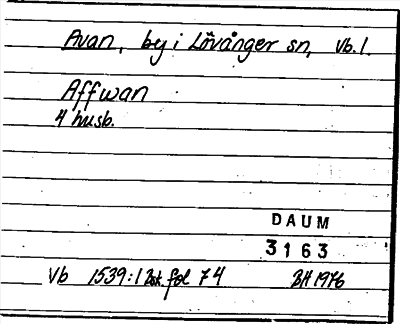 Avan, by i Lövånger sn, Vb. l.
Affwan
4 husb.
DAUM
3163
Vb 1539:1 Bok. fol 74 BH 1976